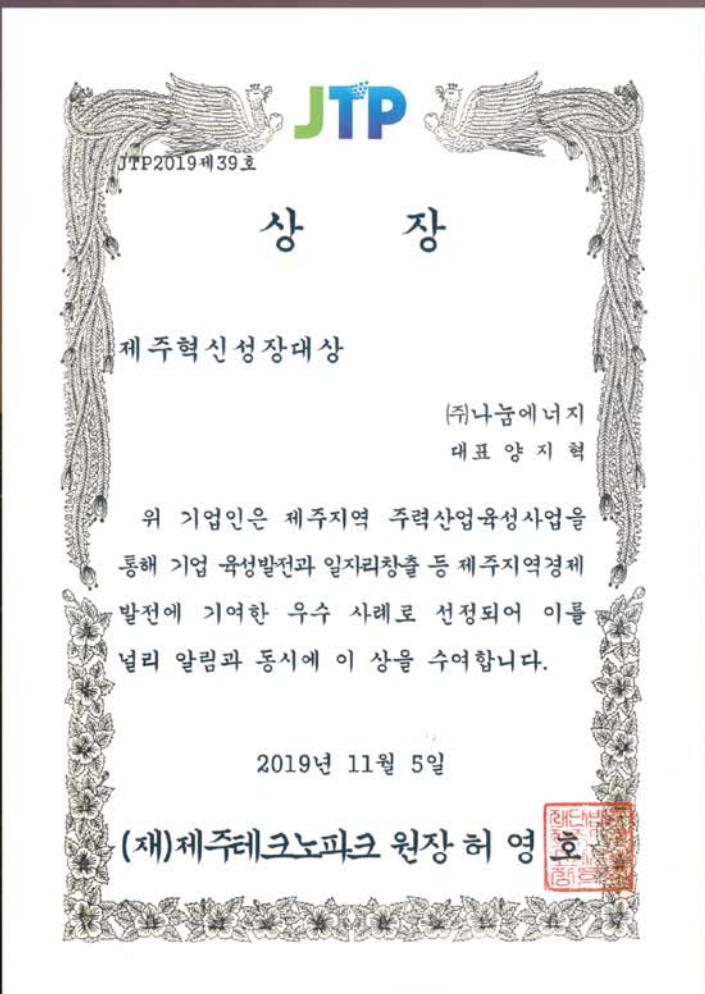 JTP
JTP2019제39호
상 장
제주혁신성장대상
(주)나눔에너지
대표 양 지 혁
위 기업인은 제주지역 주력산업육성사업을
통해 기업 육성발전과 일자리창출 등 제주지역경제
발전에 기여한 우수 사례로 선정되어 이를
널리 알림과 동시에 이 상을 수여합니다.
2019년 11월 5일
(재)제주테크노파크 원장 허 영 호